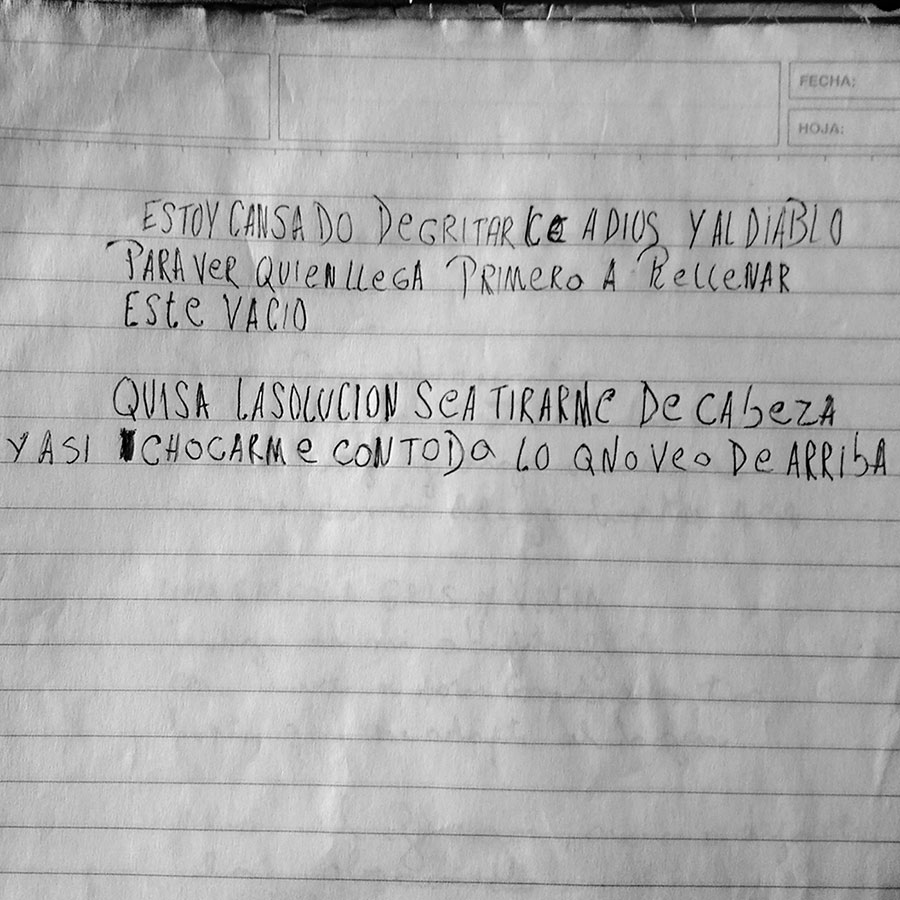 FECHA:
HOJA:
ESTOY CANSADO DE GRITARLE A DIOS Y AL DIABLO
PARA VER QUIEN LLEGA PRIMERO A RELLENAR
ESTE VACIO
QUISA LA SOLUCION SEA TIRARME DE CABEZA
Y ASI CHOCARME CON TODO LO Q NO VEO DE ARRIBA